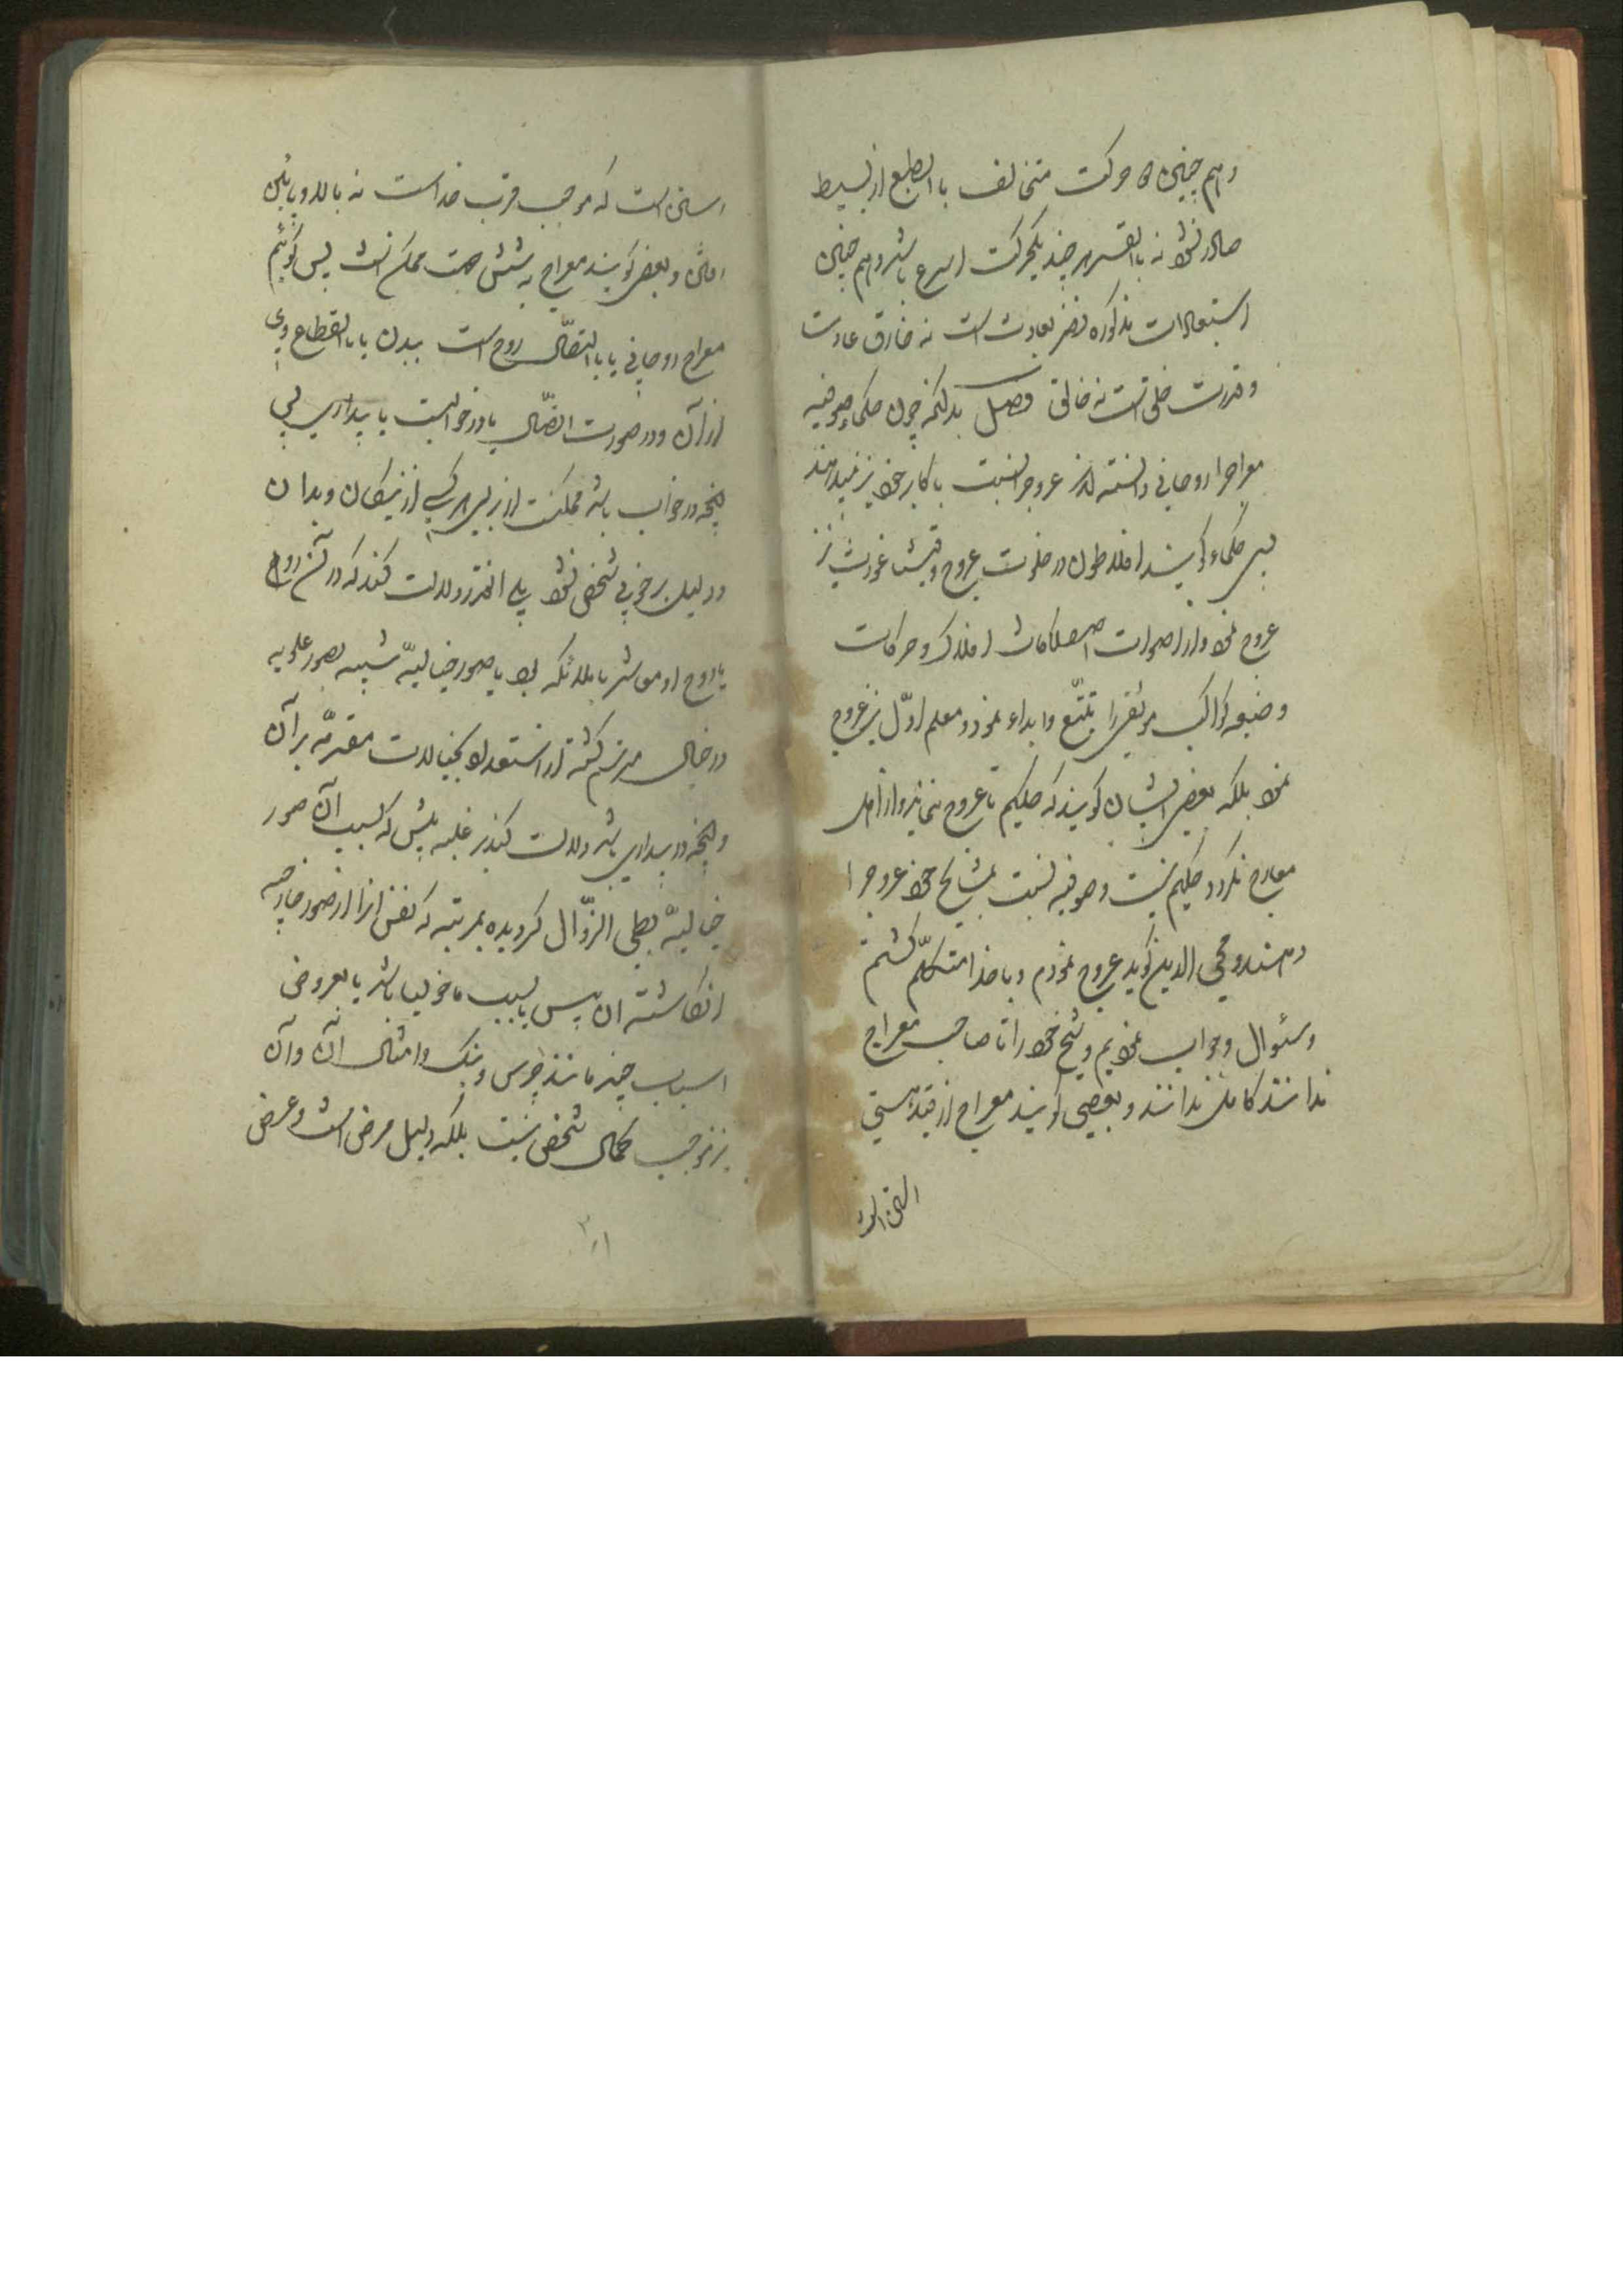 و هم چنین حرکت متخالف باالطبع از بسیط
صادر نشود نه باالقسر هر چند یکحرکت اسرع باشد و هم چنین
استبعادات مذکوره نظر بعادت است نه خارق عادت
و قدرت خلق است نه خالق فصل بدانکه چون حکماء صوفیه
معراجرا روحانی دانسته‌اند عروجرا نسبت باکابر خود نیز میدهند
پس حکماء گویند افلاطون در خلوت عروج
عروج نمود و از اصوات اصطکاکات افلاک و حرکات
کواکب موسیقی را تتبّع و ابداء نمود و معلم اوّل نیز عروج
نمود بلکه بعضی ایشان گویند که حکیم تا عروج ننماید و از اهل
معارج نگردد حکیم نیست و صوفیه نسبت بمشایخ خود عروجرا
دهند و محی الدین گوید عروج نمودم و با خدا متکلّم گشتم
و سئوال و جواب نمودیم و شیخ خود را تا صاحب معراج
ندانند کامل ندانند و بعضی گویند معراج از قید هستی
رستن است که موجب قرب خداست نه بالا و پائین
رفتن و بعضی گویند معراج به شش جهت ممکن است پس گوئیم
معراج روحانی یا باالتصّال روح است ببدن یا باانقطاع وی
از آن و در صورت اتصّال یا در خوابست یا بیداری پس
آنچه در خواب باشد ممکنست از برای هر کسی از نیکان و بدان
و دلیل بر خوبی شخص نشود بلی اینقدر دلالت کند که در آنشب روح
یا روح او مباشر با ملائکه بود یا صور خیالیّه شبیه بصور علویه
در خیال مرتسم گشته از استعداد بخیالات مقدّمه بر آن
و آنچه در بیداری باشد دلالت کند بر غلبه یبس که بسبب آن صور
خیالیّه بطی الزوّال گردیده بمرتبه که نفس آنرا از صور خارجیه
انگاشته آن یبس یا بسبب ماخولیا باشد یا بعروض
اسباب چند مانند چرس و بنک و امثال آن و آن
نیز موجب کمال شخص نیست بلکه دلیل مرض است و عرض